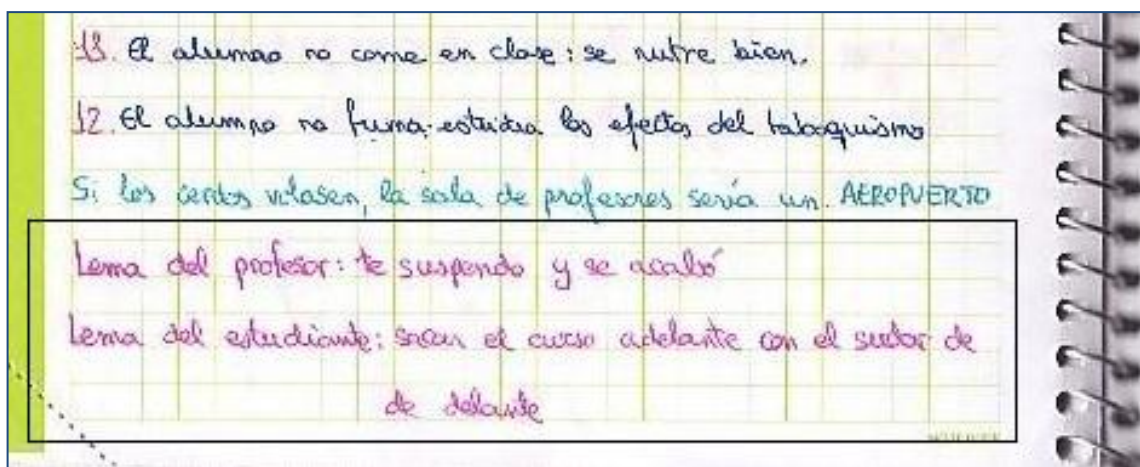 13. El alumno no come en clase: se nutre bien.
12. El alumno no fuma: estudia los efectos del tabaquismo
Si los cerdos volasen, la sala de profesores sería un AEROPUERTO
Lema del profesor: te suspendo y se acabó
Lema del estudiante: sacar el curso adelante con el sudor de
de delante